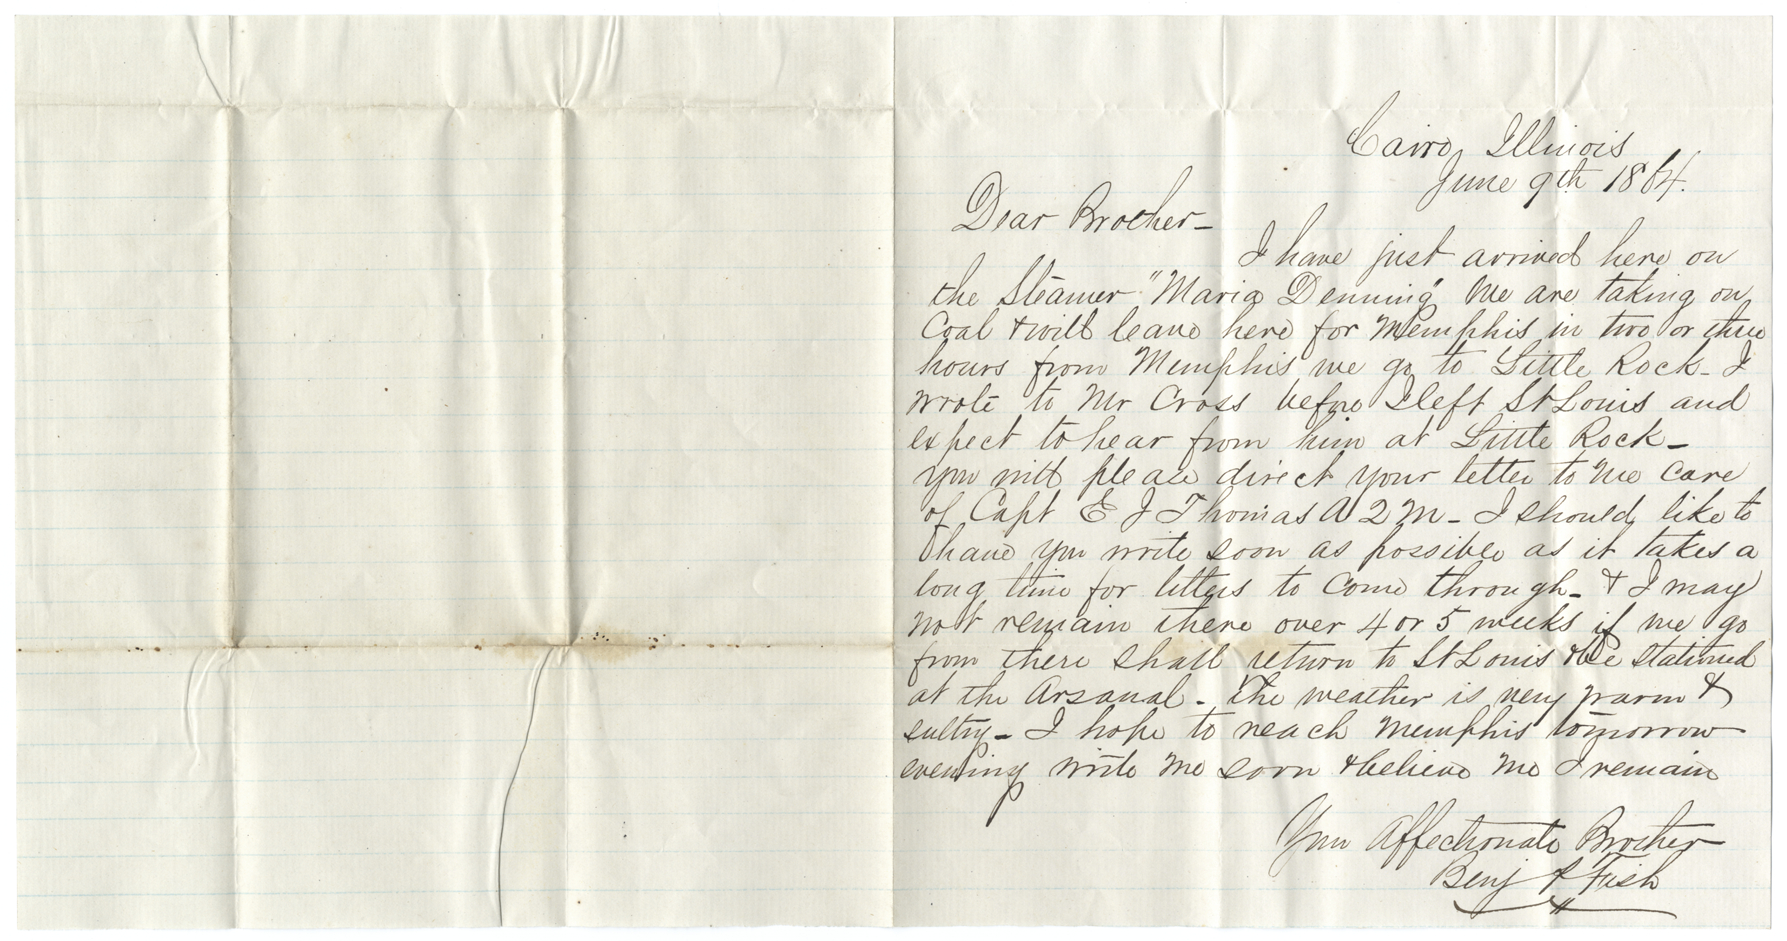 Cairo, Illinois
June 9th 1864.
Dear Brother-
I have just arrived here on
the Steamer "Maria Denning" We are taking on
Coal & will leave here for Memphis in two or three
hours from Memphis we go to Little Rock - I
wrote to Mr Cross before I left St Louis and
expect to hear from him at Little Rock -
You will please direct your letter to me care
of Capt E J Thomas A Q M - I should like to
have you write soon as possible as it takes a
long time for letters to come through - & I may
not remain there over 4 or 5 weeks if we go
from there shall return to St Louis & be stationed
at the Arsanal - The weather is very warm &
sultry - I hope to reach Memphis tomorrow
evening write me soon & believe me I remain
Your Affectionate Brother
Benj Fish